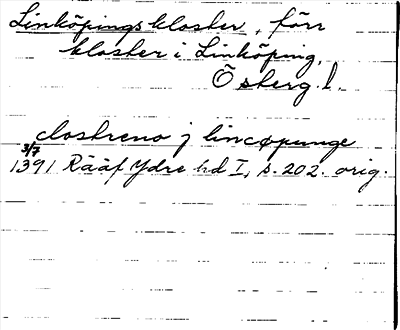 Linköpingskloster, förr
kloster i Linköping,
Östberg. l.
clostreno j lincøpunge
3/7
1391 Rääf Ydre hd I, s. 202. orig.